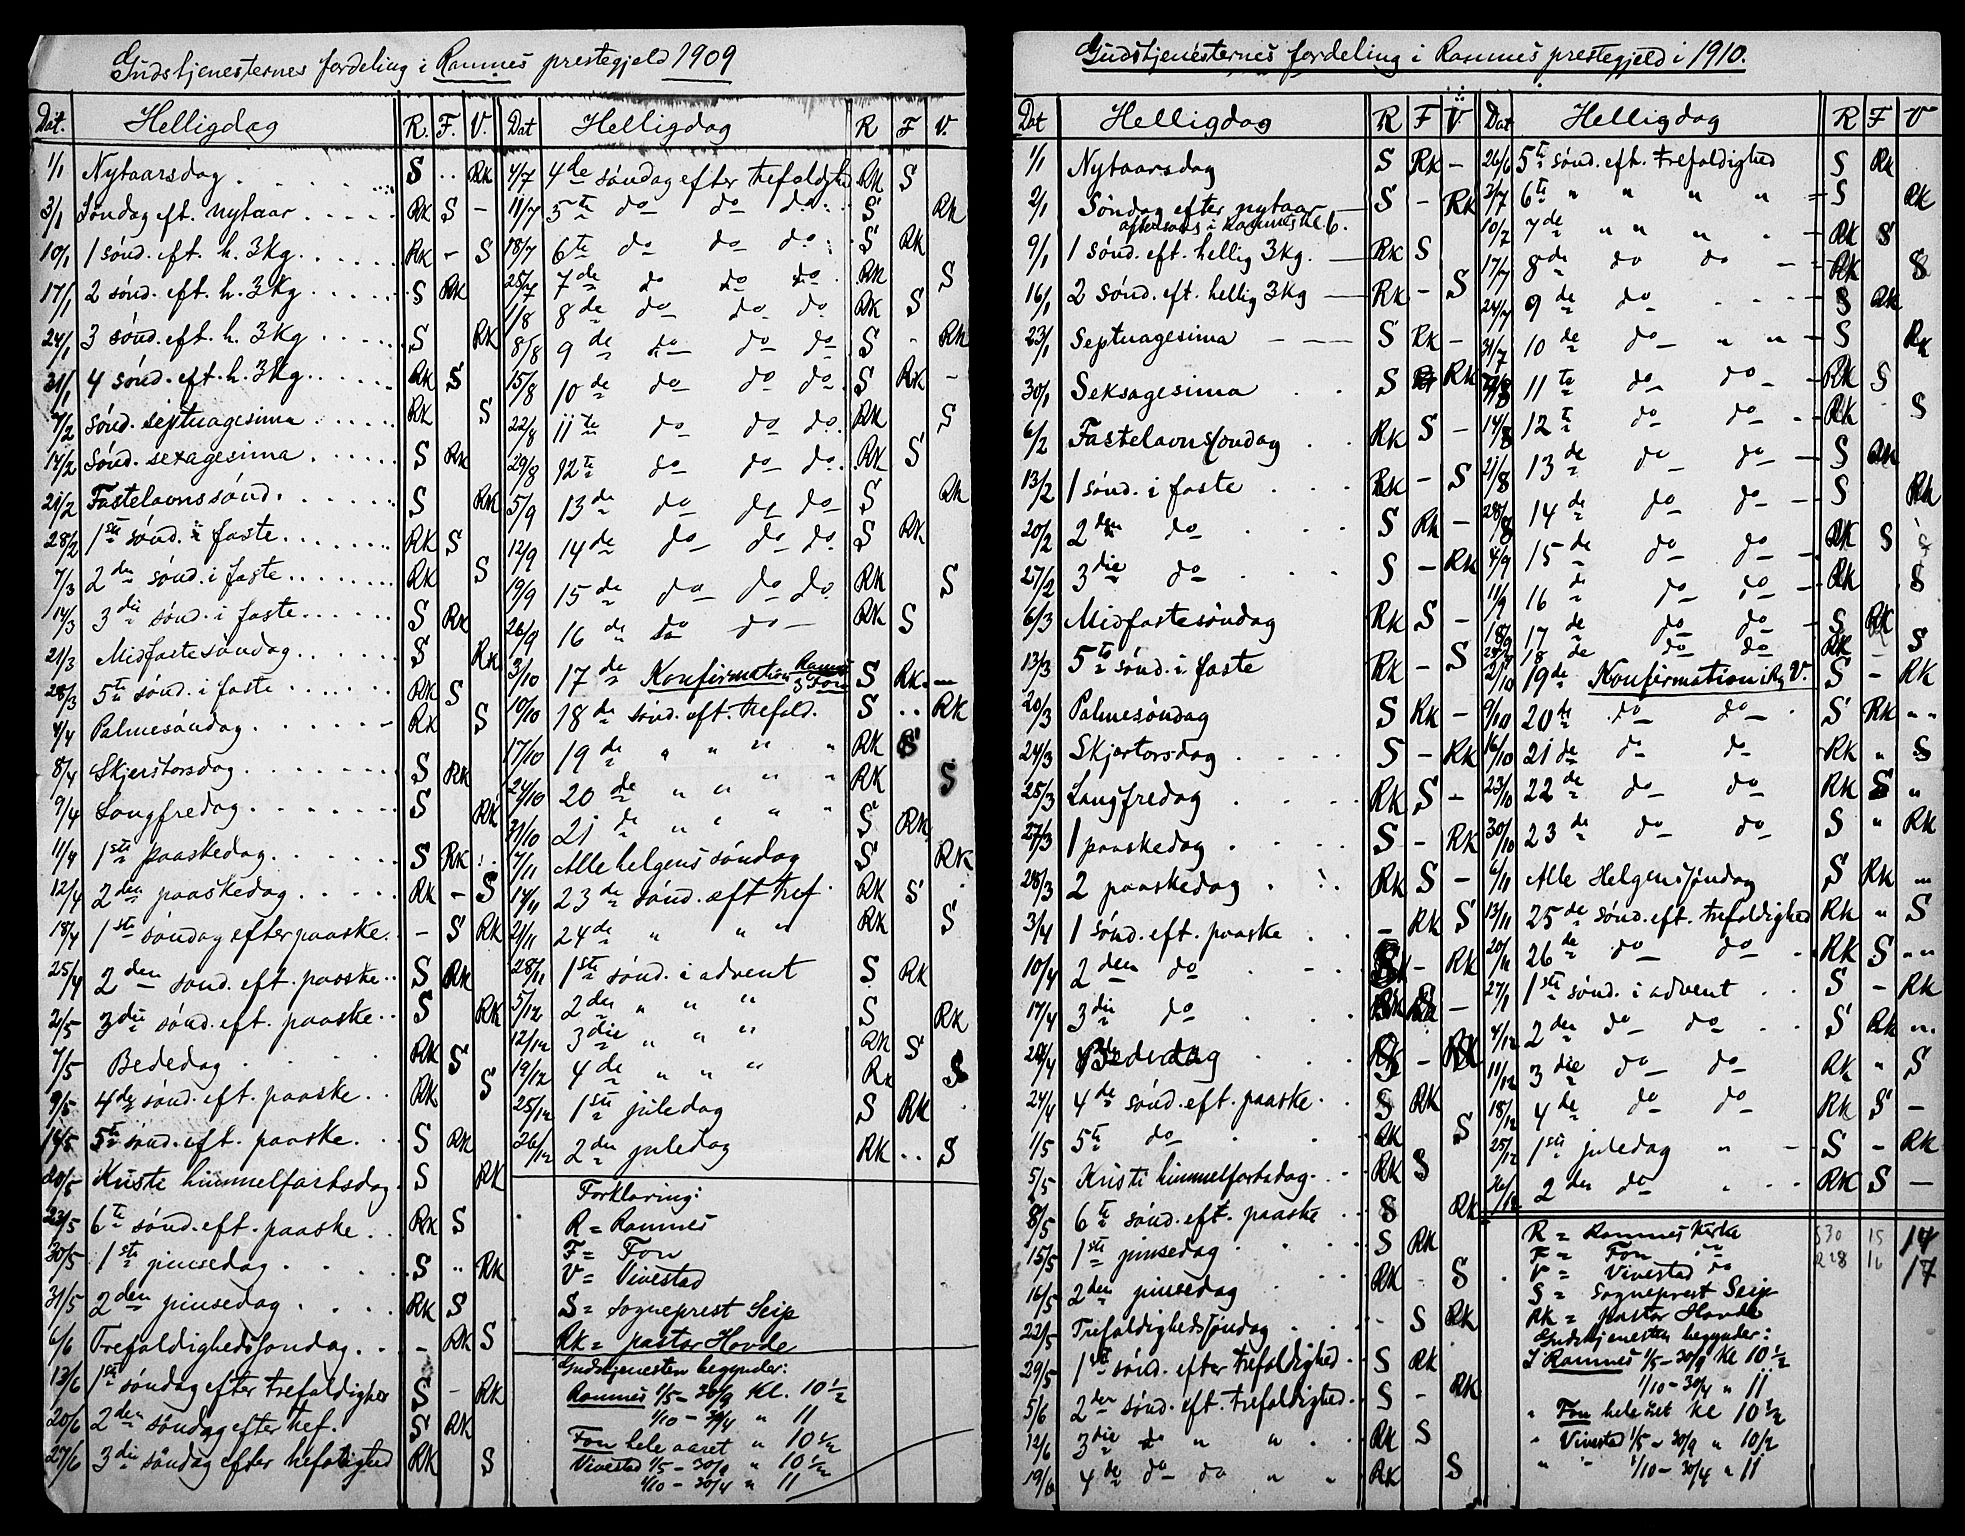 Gudstjenesternes fordeling i Ramnes prestegjeld 1909
Dat. Helligdag R. F. V.
1/1 Nytaarsdag S .. RK
3/1 Søndag eft. nytaar RK S -
10/1 1 sønd. eft. h. 3 kg. RK - S
17/1 2 sønd. eft. h. 3 kg S RK
24/1 3 sønd. eft. h. 3 kg S RK
31/1 4 sønd. eft. h. 3 kg. RK S
7/2 Sønd. septuagesima RK S
14/2 Sønd. sexagesima S RK
21/2 Fastelavnssønd. S RK
28/2 1ste sønd. i faste RK S
7/3 2den sønd. i faste RK S
14/3 3die sønd. i faste S RK
21/3 Midfastesøndag S RK
28/3 5te sønd. i faste RK S
4/4 Palmesøndag RK S
8/4 Skjærstorsdag S RK
9/4 Langfredag S RK
11/4 1ste paaskedag S RK
12/4 2den paaskedag RK - S
18/4 1ste søndag efter paaske - S RK
25/4 2den sønd. eft. paaske S RK
2/5 3die sønd. eft. paaske S RK
7/5 Bededag RK S
9/5 4de sønd. eft. paaske RK S
16/5 5te sønd. eft. paaske. S RK
20/5 Kristi himmelfartsdag S RK
23/5 6te sønd. eft. paaske RK S
30/5 1ste pinsedag S .. RK
31/5 2den pinsedag RK S
6/6 Trefoldighedssøndag - RK S
13/6 1ste søndag efter trefoldighed S - RK
20/6 2den søndag efter tref. S RK
27/6 3die søndag efter trefoldighed RK S
Dat Helligdag R F V.
4/7 4de søndag efter trefoldighed RK S
11/7 5te do do do S RK
18/7 6te do do do S RK
25/7 7de do do do RK S
1/8 8de do do do RK S
8/8 9de do do do S - RK
15/8 10de do do do S RK -
22/8 11te do do do RK S
29/8 12te do do do RK S
5/9 13de do do do S RK
12/9 14de do do do S RK
19/9 15de do do do RK S
26/9 16de do do RK S
3/10 17de Konfirmation Ramnes & Fon S RK -
10/10 18de sønd. eft. trefold. S .. RK
17/10 19de " " " " RK S
24/10 20de " " " " RK S
31/10 21de " " " " S RK
7/11 Alle helgens søndag S RK
14/11 23de sønd. eft tref. RK S
21/11 24de " " " RK S
28/11 1ste sønd. i advent S RK
5/12 2den " " " S RK
12/12 3die " " " RK S
19/12 4de " " " RK S
25/12 1ste juledag S RK
26/12 2den juledag RK .. S
Forklaring:
R = Ramnes
F = Fon
V = Vivestad
S = Sogneprest Seip
RK = pastor Hovde
Gudstjenesten begynder:
Ramnes 1/5 - 30/9 Kl. 10 1/2
1/10 - 30/4 " 11
Fon hele aaret " 10 1/2
Vivestad 1/5 - 30/9 " 10 1/2
1/10 - 30/4 " 11
Gudstjenesternes fordeling i Ramnes prestegjeld i 1910.
Dat Helligdag R F V.
1/1 Nytaarsdag S RK -
2/1 Søndag efter nytaar S - RK
aftensang i Ramnes kl. 6.
9/1 1 sønd. eft. hellig 3 kg. RK S
16/1 2 sønd. eft. hellig 3 kg RK - S
23/1 Septuagesima S RK -
30/1 Seksagesima S RK
6/2 Fastelavnssøndag RK S -
13/2 1 sønd. i faste RK - S
20/2 2den do S RK -
27/2 3die do S - RK
6/3 Midfastesøndag RK S -
13/3 5te sønd. i faste RK - S
20/3 Palmesøndag S RK -
24/3 Skjærtorsdag S - RK
25/3 Langfredag RK S -
27/3 1 paaskedag S - RK
28/3 2 paaskedag RK S -
3/4 1 sønd. eft. paaske - RK S
10/4 2den do S - RK
17/4 3die do
Bededag
24/4 4de sønd. eft. paaske S RK
1/5 5te do RK S
5/5 Kristi himmelfartsdag RK S
8/5 6te sønd. eft. paaske S RK
15/5 1ste pinsedag S RK
16/5 2den pinsedag RK S
22/5 Trefoldighedssøndag - S RK
29/5 1ste sønd. efter trefoldighed S RK
5/6 2den sønd. eft. trefoldighed S - RK
12/6 3die do " " RK S
19/6 4de do do " " RK S
Dat Helligdag R F V
26/6 5te sønd. eft. trefoldighed S RK
3/7 6te " " " " S RK
10/7 7de " " " " RK S
17/7 8de do do RK S
24/7 9de do S RK
31/7 10de do " " S RK
7/8 11te do do RK S
14/8 12te do do RK S
21/8 13de do do S RK
28/8 14de do do S RK
4/9 15de do do RK S
11/9 16de do do RK S
18/9 17de do do S RK
25/9 18de do do RK S
2/10 19de Konfirmation i V. S - RK
9/10 20de do do S RK " "
16/10 21de do do RK " S
23/10 22de do do RK S "
30/10 23de do do S " RK
6/11 Alle Helgenssøndag S RK "
13/11 25de sønd. eft. trefoldighed RK " S
20/11 26de do do RK S " "
27/11 1ste sønd. i advent S - RK
4/12 2den do do S RK " "
11/12 3die do do RK " S
18/12 4de do do RK S -
25/12 1ste juledag " S - RK
26/12 2den do RK S -
R = Ramnes kirke
F = Fon do
V = Vivestad do
S = Sogneprest Seip
RK = pastor Hovde
Gudstjenesten begynder:
I Ramnes 1/5 - 30/9 Kl 10 1/2
1/10 - 30/4 " 11
" Fon hele aaret Kl 10 1/2
" Vivestad 1/5 - 30/9 " 10 1/2
" " 1/10 - 30/4 " 11
S 30 15 14
R 28 16 17